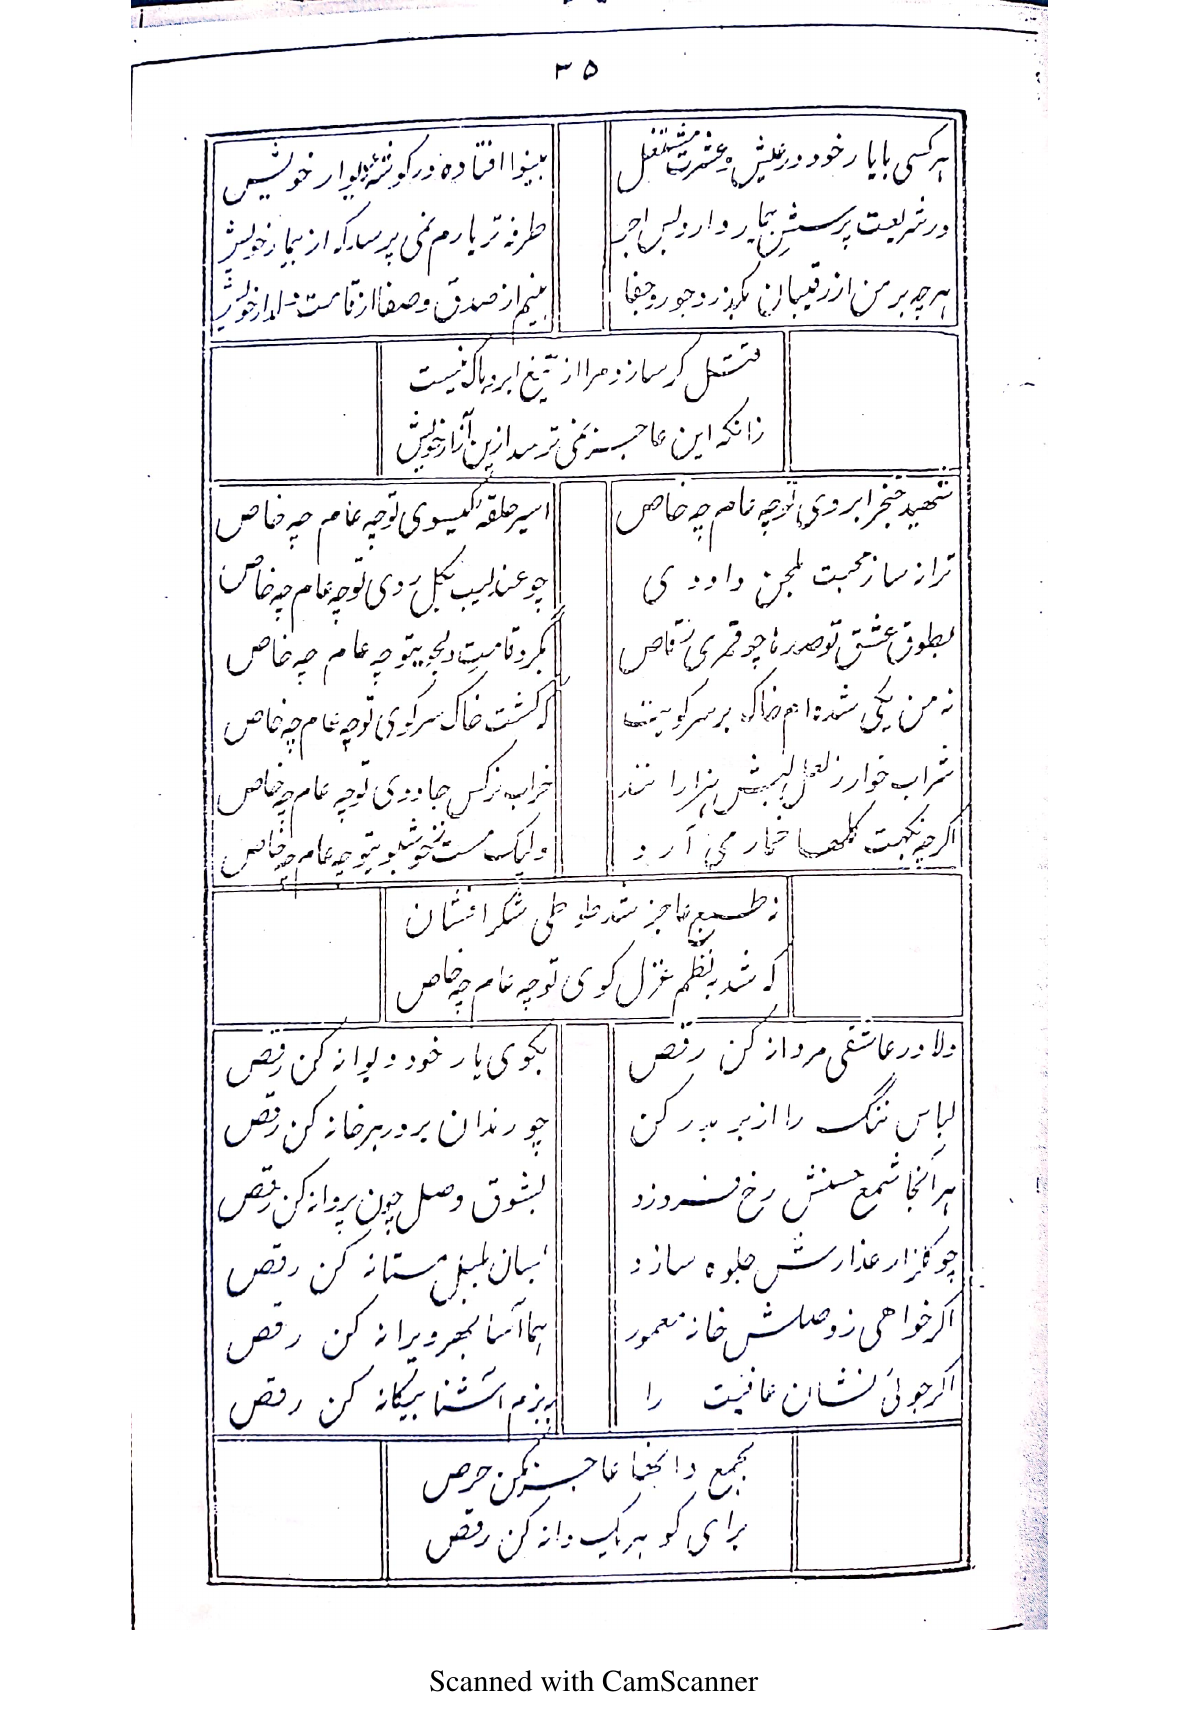 ۳۵
هر کسی با یار خود در عیش و عشرت مشتغل بینوا افتاده در گوشهٔ دیوار خویش
در شریعت پرسش بیمار دارد بس اجر طرفه تر یارم نمی پرسد که از بیمار خویش
هر چه بر من از رقیبان بگذرد جور و جفا بینم از صدق و صفا از قامت دلدار خویش
قتل گر سازد مرا از تیغ ابرو باک نیست
زانکه این عاجز نمی ترسد ازین آزار خویش
شهید خنجر ابروی تو چه عام چه خاص اسیر حلقهٔ گیسوی تو چه عام چه خاص
ترانه ساز محبت بلحن داودی چو عندلیب بگل روی تو چه عام چه خاص
بطوق عشق تو صدها چو قمری رقاص بگرد قامت دلجویتو چه عام چه خاص
نه من یکی شده ام خاک بر سر کویت که گشت خاک سر کوی تو چه عام چه خاص
شراب خوار ز لعل لبش هزارانند خراب نرگس جادوی تو چه عام چه خاص
اگر چه نکهت گلها خمار می آرد ولیک مست ز خوشبویتو چه عام چه خاص
نه طبع عاجز شد طوطی شکر افشان
که شد به نظم غزل گوی تو چه عام چه خاص
دلا در عاشقی مردانه کن رقص بکوی یار خود دیوانه کن رقص
لباس ننگ را از بر بدر کن چو رندان بر در هر خانه کن رقص
هر آنجا شمع حسنش رخ فروزد بشوق وصل چون پروانه کن رقص
چو گلزار عذارش جلوه سازد بسان بلبل مستانه کن رقص
اگر خواهی ز وصلش خانه معمور هما آسا بهر ویرانه کن رقص
اگر جوئی نشان عافیت را ببزم آشنا بیگانه کن رقص
بجمع دانها عاجز مکن حرص
برای کو هر یک دانه کن رقص
Scanned with CamScanner